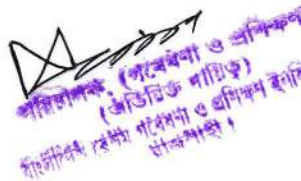 পরিচালক (গবেষণা ও প্রশিক্ষণ
(অতিরিক্ত দায়িত্ব)
বাংলাদেশ রেশম গবেষণা ও প্রশিক্ষণ
রাজশাহী।